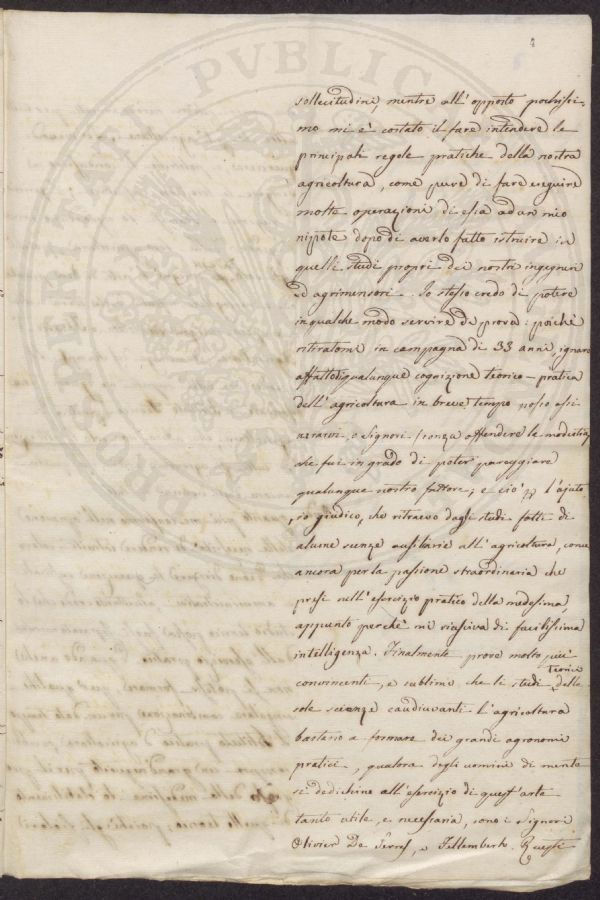 4
sollecitudini mentre all' opposto pochissi-
mo mi è costato il fare intendere le
principali regole pratiche della nostra
agricoltura, come pure di fare eseguire
molte operazioni di essa ad un mio
nippote dopo di averlo fatto istruire in
quelli studi propri dei nostri ingegneri
ed agrimensori. Io stesso credo di potere
in qualche modo servire di prova: poichè
ritiratomi in campagna di 33 anni, ignaro
affatto di qualunque cognizione teorico-pratica
dell' agricoltura in breve tempo posso assi
curarvi, o Signori (senza offendere la modestia)
che fui in grado di poter pareggiare
qualunque nostro fattore; e ciò l'ajuto
, io giudico, che ritraevo dagli studi fatti di
alcune scienze ausiliarie all' agricoltura, come
ancora per la passione straordinaria che
presi nell' esercizio pratico della medesima,
appunto perchè mi riesciva di facilissima
intelligenza. Finalmente prove molto più
convincenti, e sublimi che li studi teorici delle
sole scienze coadiuvanti l'agricoltura
bastano a formare dei grandi agronomi
pratici, qualora degli uomini di mente
si dedichino all' esercizio di quest' arte
tanto utile, e necessaria, sono i Signori
Olivier De Serres, e Fellemberk. Questi
PROSPERITATI PUBLICAE